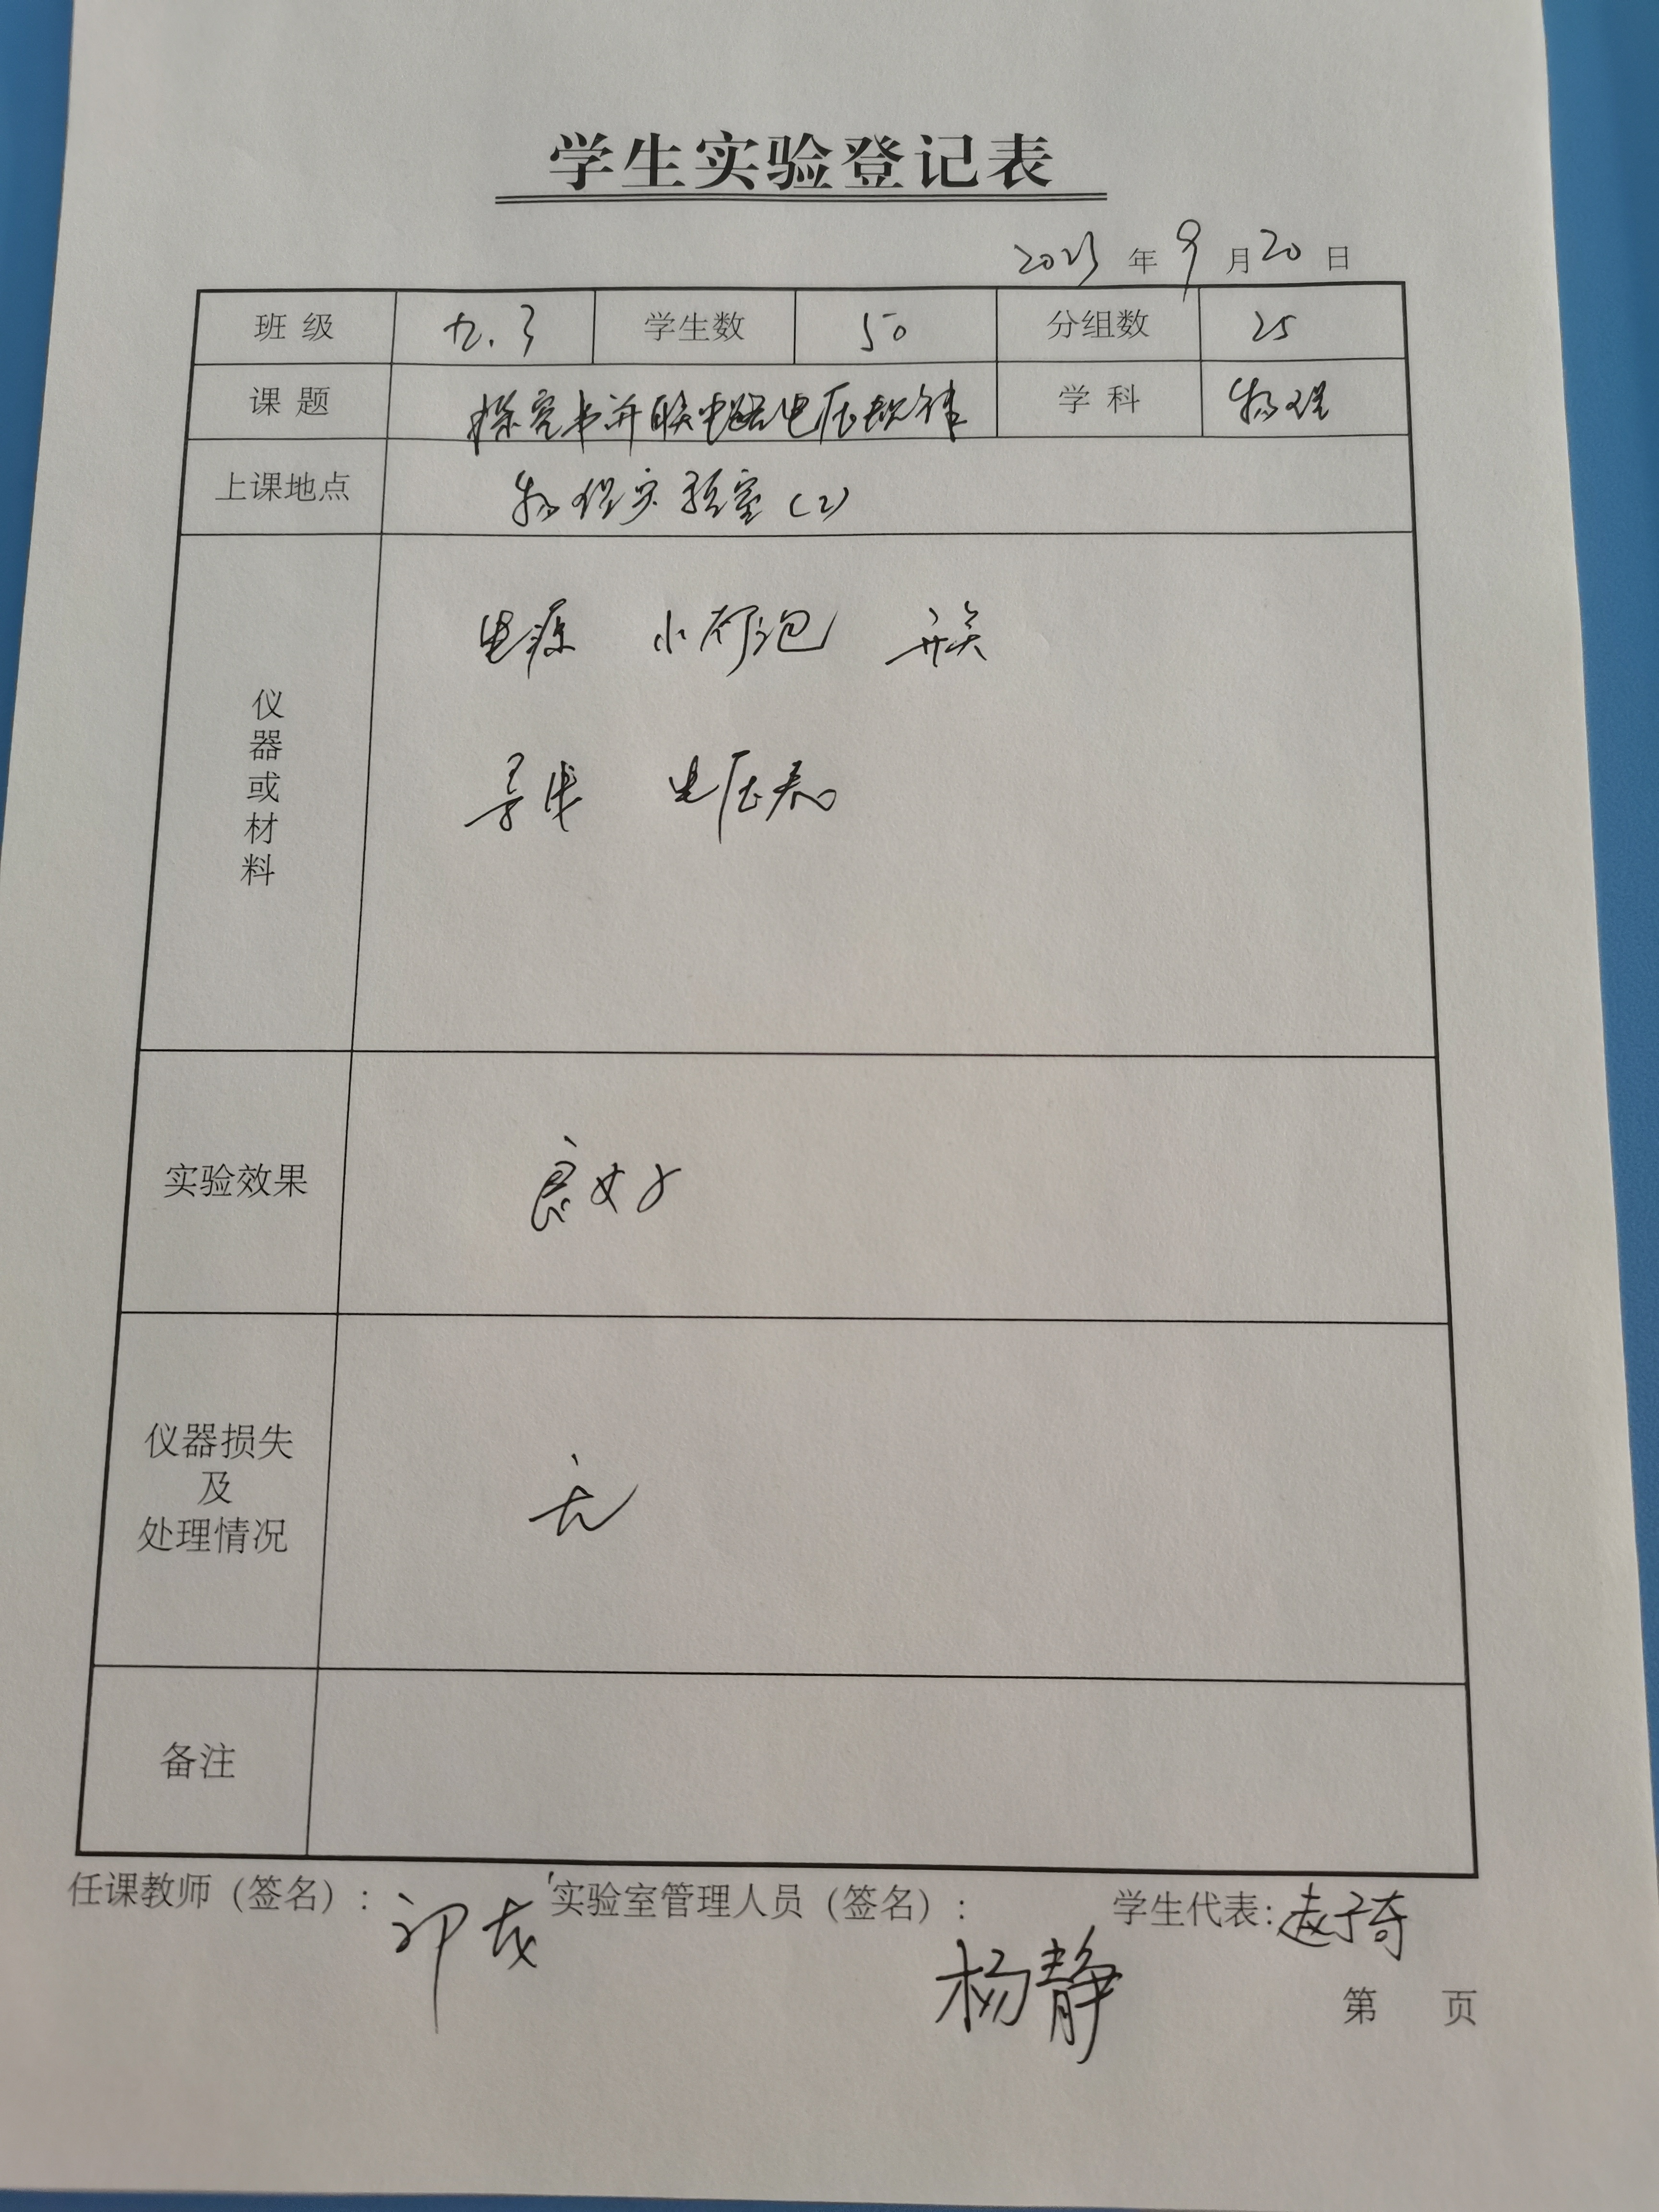 学生实验登记表
2023 年 9 月 20 日
班级 九.3 学生数 50 分组数 25
课题 探究串并联电路电压规律 学科 物理
上课地点 物理实验室(2)
仪器或材料
电源 小灯泡 开关
导线 电压表
实验效果 良好
仪器损失
及
处理情况 无
备注
任课教师（签名）： 实验室管理人员（签名）： 学生代表: 赵子奇
杨静
第 页